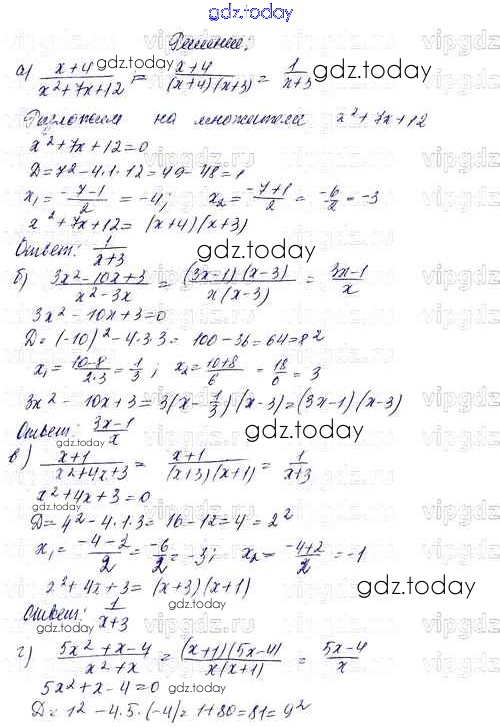 gdz.today
Решение:
а) (x+4)/(x²+7x+12) = (x+4)/((x+4)(x+3)) = 1/(x+3)
Разложим на множители x²+7x+12
x²+7x+12=0
D=7²-4·1·12=49-48=1
x₁=(-7-1)/2=-4; x₂=(-7+1)/2=-6/2=-3
x²+7x+12=(x+4)(x+3)
Ответ: 1/(x+3)
б) (3x²-10x+3)/(x²-3x) = ((3x-1)(x-3))/(x(x-3)) = (3x-1)/x
3x²-10x+3=0
D=(-10)²-4·3·3=100-36=64=8²
x₁=(10-8)/(2·3)=1/3; x₂=(10+8)/6=18/6=3
3x²-10x+3=3(x-1/3)(x-3)=(3x-1)(x-3)
Ответ: (3x-1)/x
в) (x+1)/(x²+4x+3) = (x+1)/((x+3)(x+1)) = 1/(x+3)
x²+4x+3=0
D=4²-4·1·3=16-12=4=2²
x₁=(-4-2)/2=-6/2=-3; x₂=(-4+2)/2=-1
x²+4x+3=(x+3)(x+1)
Ответ: 1/(x+3)
г) (5x²+x-4)/(x²+x) = ((x+1)(5x-4))/(x(x+1)) = (5x-4)/x
5x²+x-4=0
D=1²-4·5·(-4)=1+80=81=9²